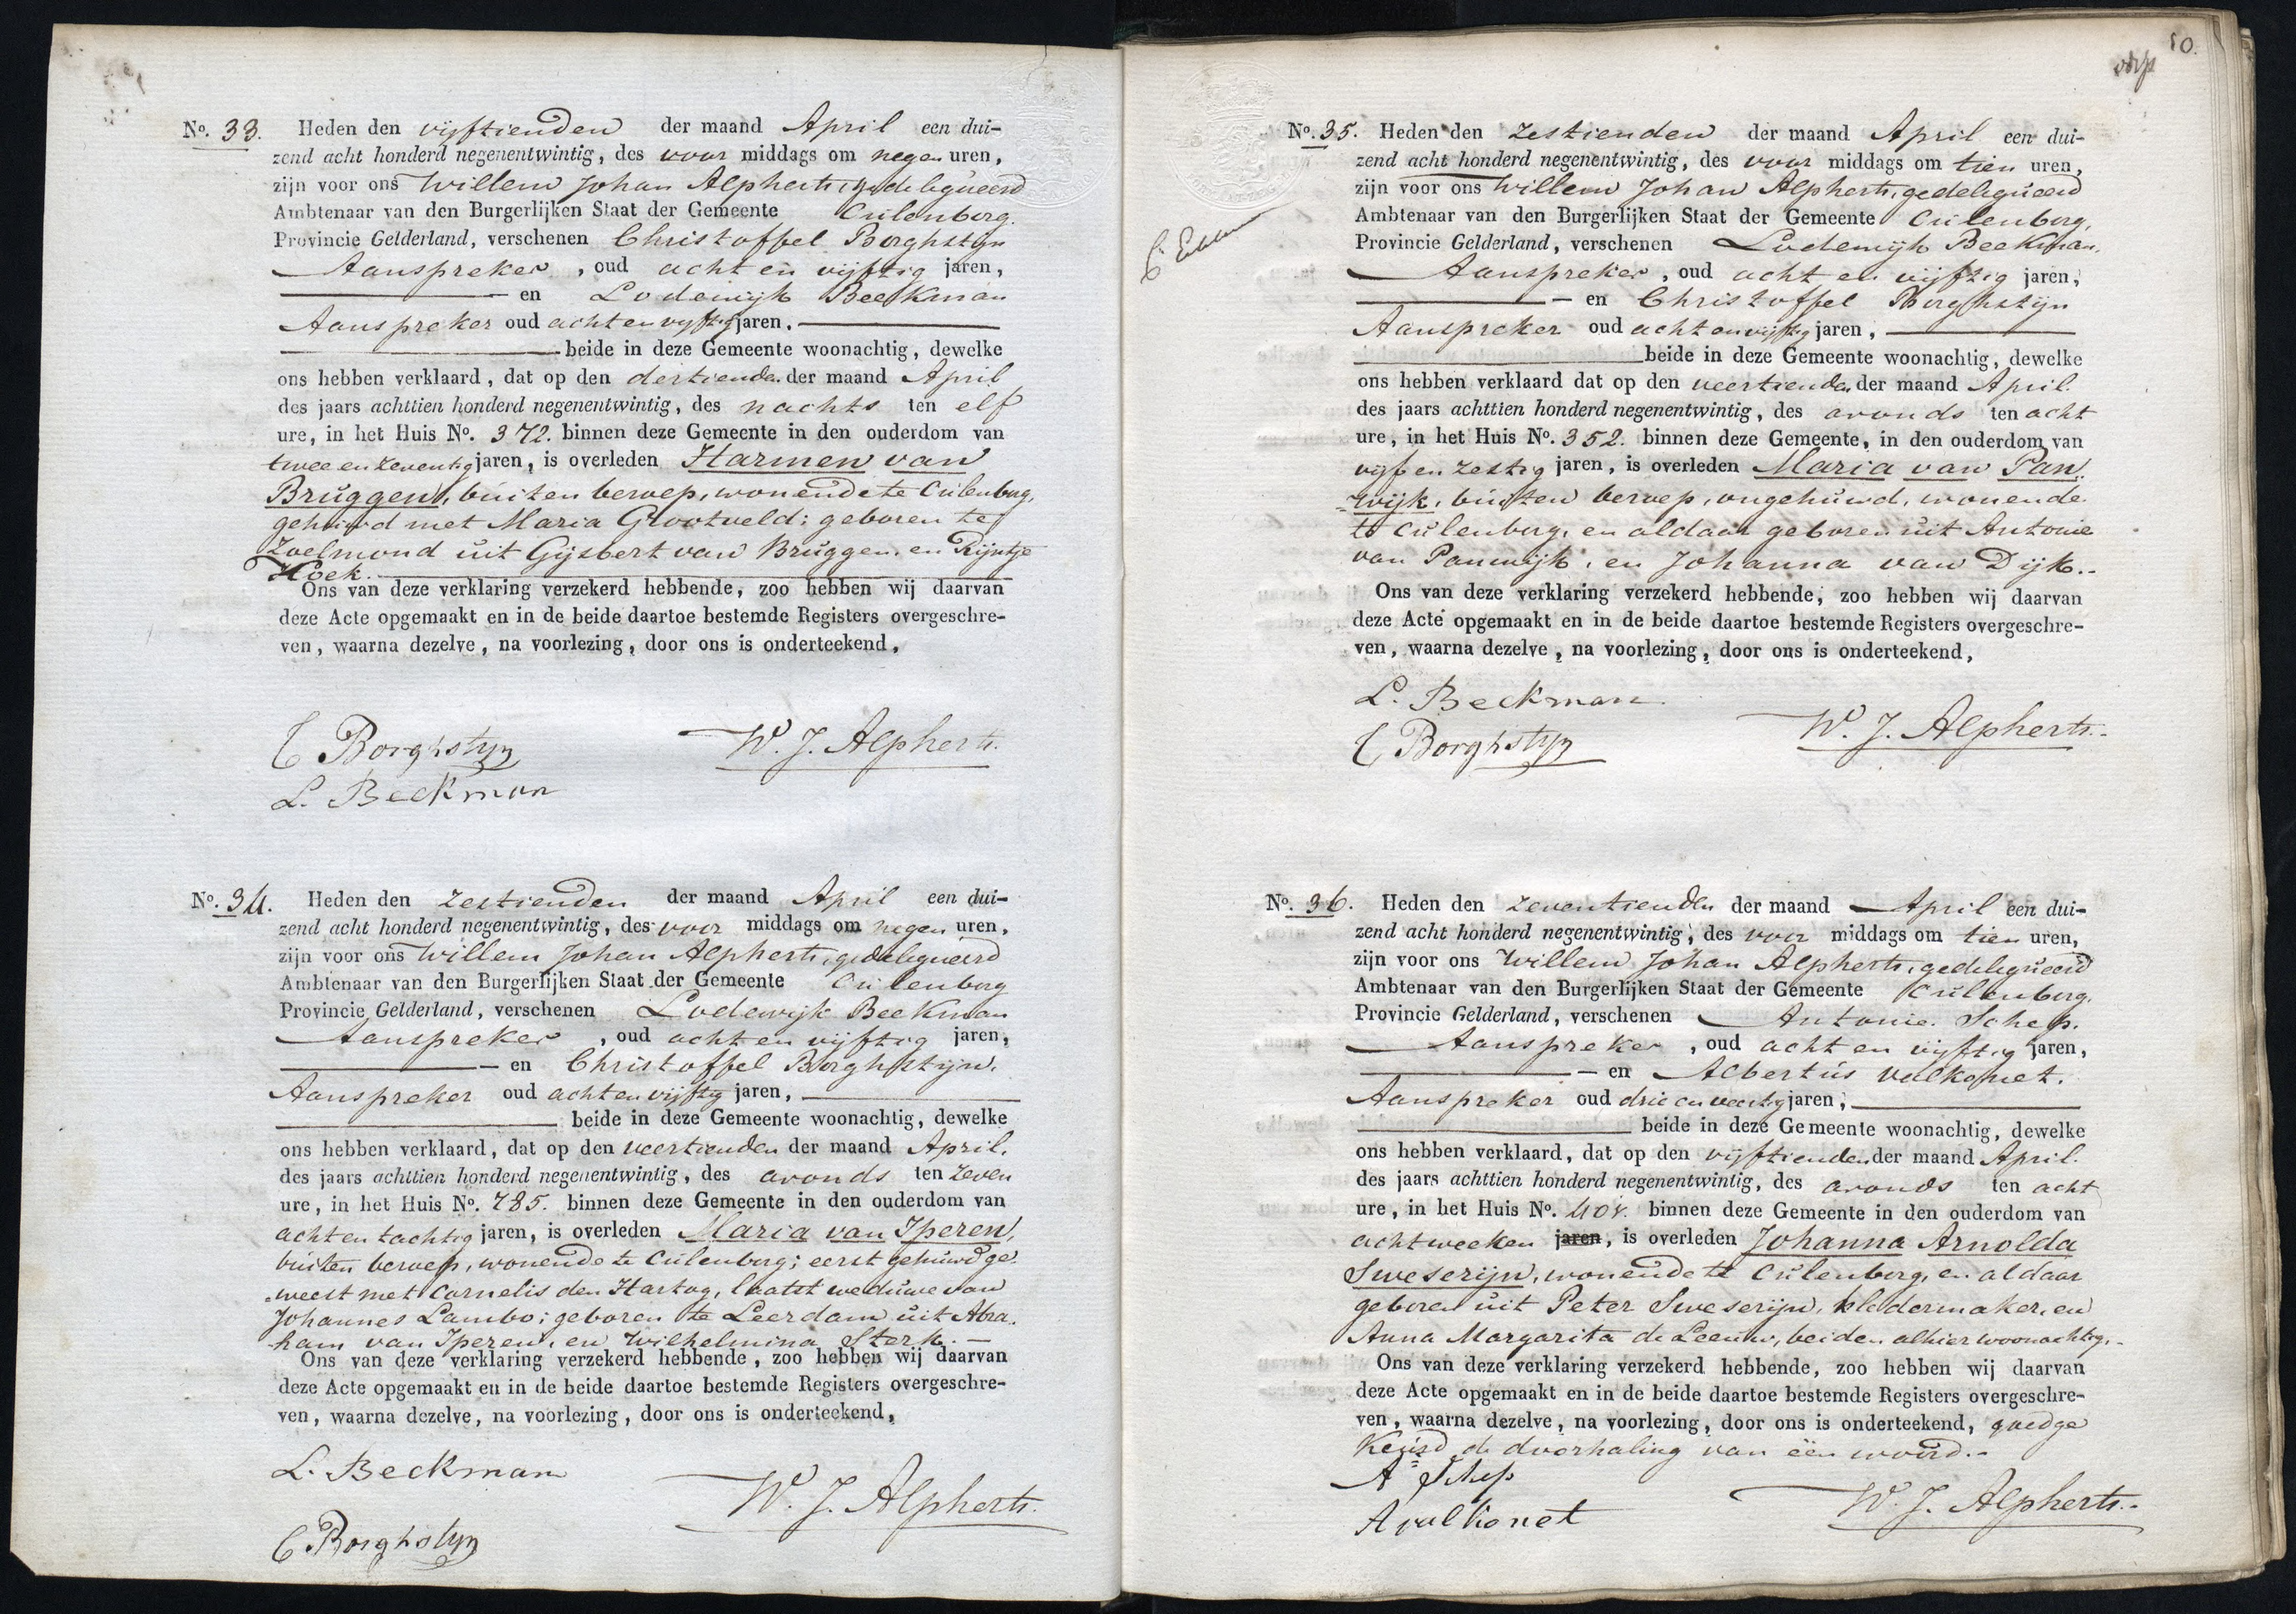 No. 33. Heden den vijftienden der maand April een dui-
zend acht honderd negenentwintig, des voor middags om negen uren,
zijn voor ons Willem Johan Alpherts, gedelegueerd
Ambtenaar van den Burgerlijken Staat der Gemeente Culenborg.
Provincie Gelderland, verschenen Christoffel Borghstijn
Aanspreker, oud acht en vijftig jaren,
en Lodewijk Beekman
Aanspreker oud acht en vijftig jaren.
beide in deze Gemeente woonachtig, dewelke
ons hebben verklaard, dat op den dertienden der maand April
des jaars achttien honderd negenentwintig, des nachts ten elf
ure, in het Huis No. 372. binnen deze Gemeente in den ouderdom van
twee en zeventig jaren, is overleden Harmen van
Bruggen, buiten beroep, wonende te Culenborg,
gehuwd met Maria Grootveld; geboren te
Zoelmond uit Gijsbert van Bruggen, en Rijntje
Hoek.
Ons van deze verklaring verzekerd hebbende, zoo hebben wij daarvan
deze Acte opgemaakt en in de beide daartoe bestemde Registers overgeschre-
ven, waarna dezelve, na voorlezing, door ons is onderteekend,
C Borghstyn W. J. Alpherts.
L. Beekman
No. 34. Heden den zestienden der maand April een dui-
zend acht honderd negenentwintig, des voor middags om negen uren,
zijn voor ons Willem Johan Alpherts, gedelegueerd
Ambtenaar van den Burgerlijken Staat der Gemeente Culenborg
Provincie Gelderland, verschenen Lodewijk Beekman
Aanspreker, oud acht en vijftig jaren,
en Christoffel Borghstijn.
Aanspreker oud acht en vijftig jaren,
beide in deze Gemeente woonachtig, dewelke
ons hebben verklaard, dat op den veertienden der maand April.
des jaars achttien honderd negenentwintig, des avonds ten zeven
ure, in het Huis No. 785. binnen deze Gemeente in den ouderdom van
acht en tachtig jaren, is overleden Maria van Iperen,
buiten beroep, wonende te Culenborg; eerst gehuwd ge-
weest met Cornelis den Hartog, laatst weduwe van
Johannes Lambo; geboren te Leerdam uit Abra-
ham van Iperen, en Wilhelmina Sterk.
Ons van deze verklaring verzekerd hebbende, zoo hebben wij daarvan
deze Acte opgemaakt en in de beide daartoe bestemde Registers overgeschre-
ven, waarna dezelve, na voorlezing, door ons is onderteekend,
L. Beekman
W. J. Alpherts.
C Borghstyn
10.
No. 35. Heden den zestienden der maand April een dui-
zend acht honderd negenentwintig, des voor middags om tien uren,
zijn voor ons Willem Johan Alpherts, gedelegueerd
Ambtenaar van den Burgerlijken Staat der Gemeente Culenborg,
Provincie Gelderland, verschenen Lodewijk Beekman.
Aanspreker, oud acht en vijftig jaren,
en Christoffel Borghstijn
Aanspreker oud acht en vijftig jaren,
beide in deze Gemeente woonachtig, dewelke
ons hebben verklaard dat op den veertienden der maand April.
des jaars achttien honderd negenentwintig, des avonds ten acht
ure, in het Huis No. 352. binnen deze Gemeente, in den ouderdom van
vijf en zestig jaren, is overleden Maria van Pan-
wijk, buiten beroep, ongehuwd, wonende
te Culenborg, en aldaar geboren uit Antonie
van Panwijk, en Johanna van Dijk.
Ons van deze verklaring verzekerd hebbende, zoo hebben wij daarvan
deze Acte opgemaakt en in de beide daartoe bestemde Registers overgeschre-
ven, waarna dezelve, na voorlezing, door ons is onderteekend,
L. Beekman
C Borghstyn W. J. Alpherts.
No. 36. Heden den zeventienden der maand April een dui-
zend acht honderd negenentwintig, des voor middags om tien uren,
zijn voor ons Willem Johan Alpherts, gedelegueerd
Ambtenaar van den Burgerlijken Staat der Gemeente Culenborg.
Provincie Gelderland, verschenen Antonie Schep.
Aanspreker, oud acht en vijftig jaren,
en Albertus Valkonet.
Aanspreker oud drie en veertig jaren,
beide in deze Gemeente woonachtig, dewelke
ons hebben verklaard, dat op den vijftienden der maand April.
des jaars achttien honderd negenentwintig, des avonds ten acht
ure, in het Huis No. binnen deze Gemeente in den ouderdom van
acht weeken jaren, is overleden Johanna Arnolda
Sweserijn, wonende te Culenborg, en aldaar
geboren uit Peter Sweserijn, kledermaker, en
Anna Margarita de Leeuw, beiden alhier woonachtig.
Ons van deze verklaring verzekerd hebbende, zoo hebben wij daarvan
deze Acte opgemaakt en in de beide daartoe bestemde Registers overgeschre-
ven, waarna dezelve, na voorlezing, door ons is onderteekend, goedge
keurd de doorhaling van één woord.
A Schep
A valkonet W. J. Alpherts.